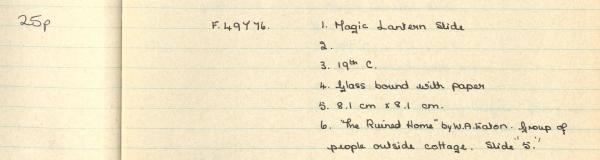 25p F.49Y76. 1. Magic Lantern Slide
2.
3. 19th C.
4. Glass bound with paper
5. 8.1 cm x 8.1 cm.
6. "The Ruined Home" by W.A. Eaton. Group of
people outside cottage. Slide "5."